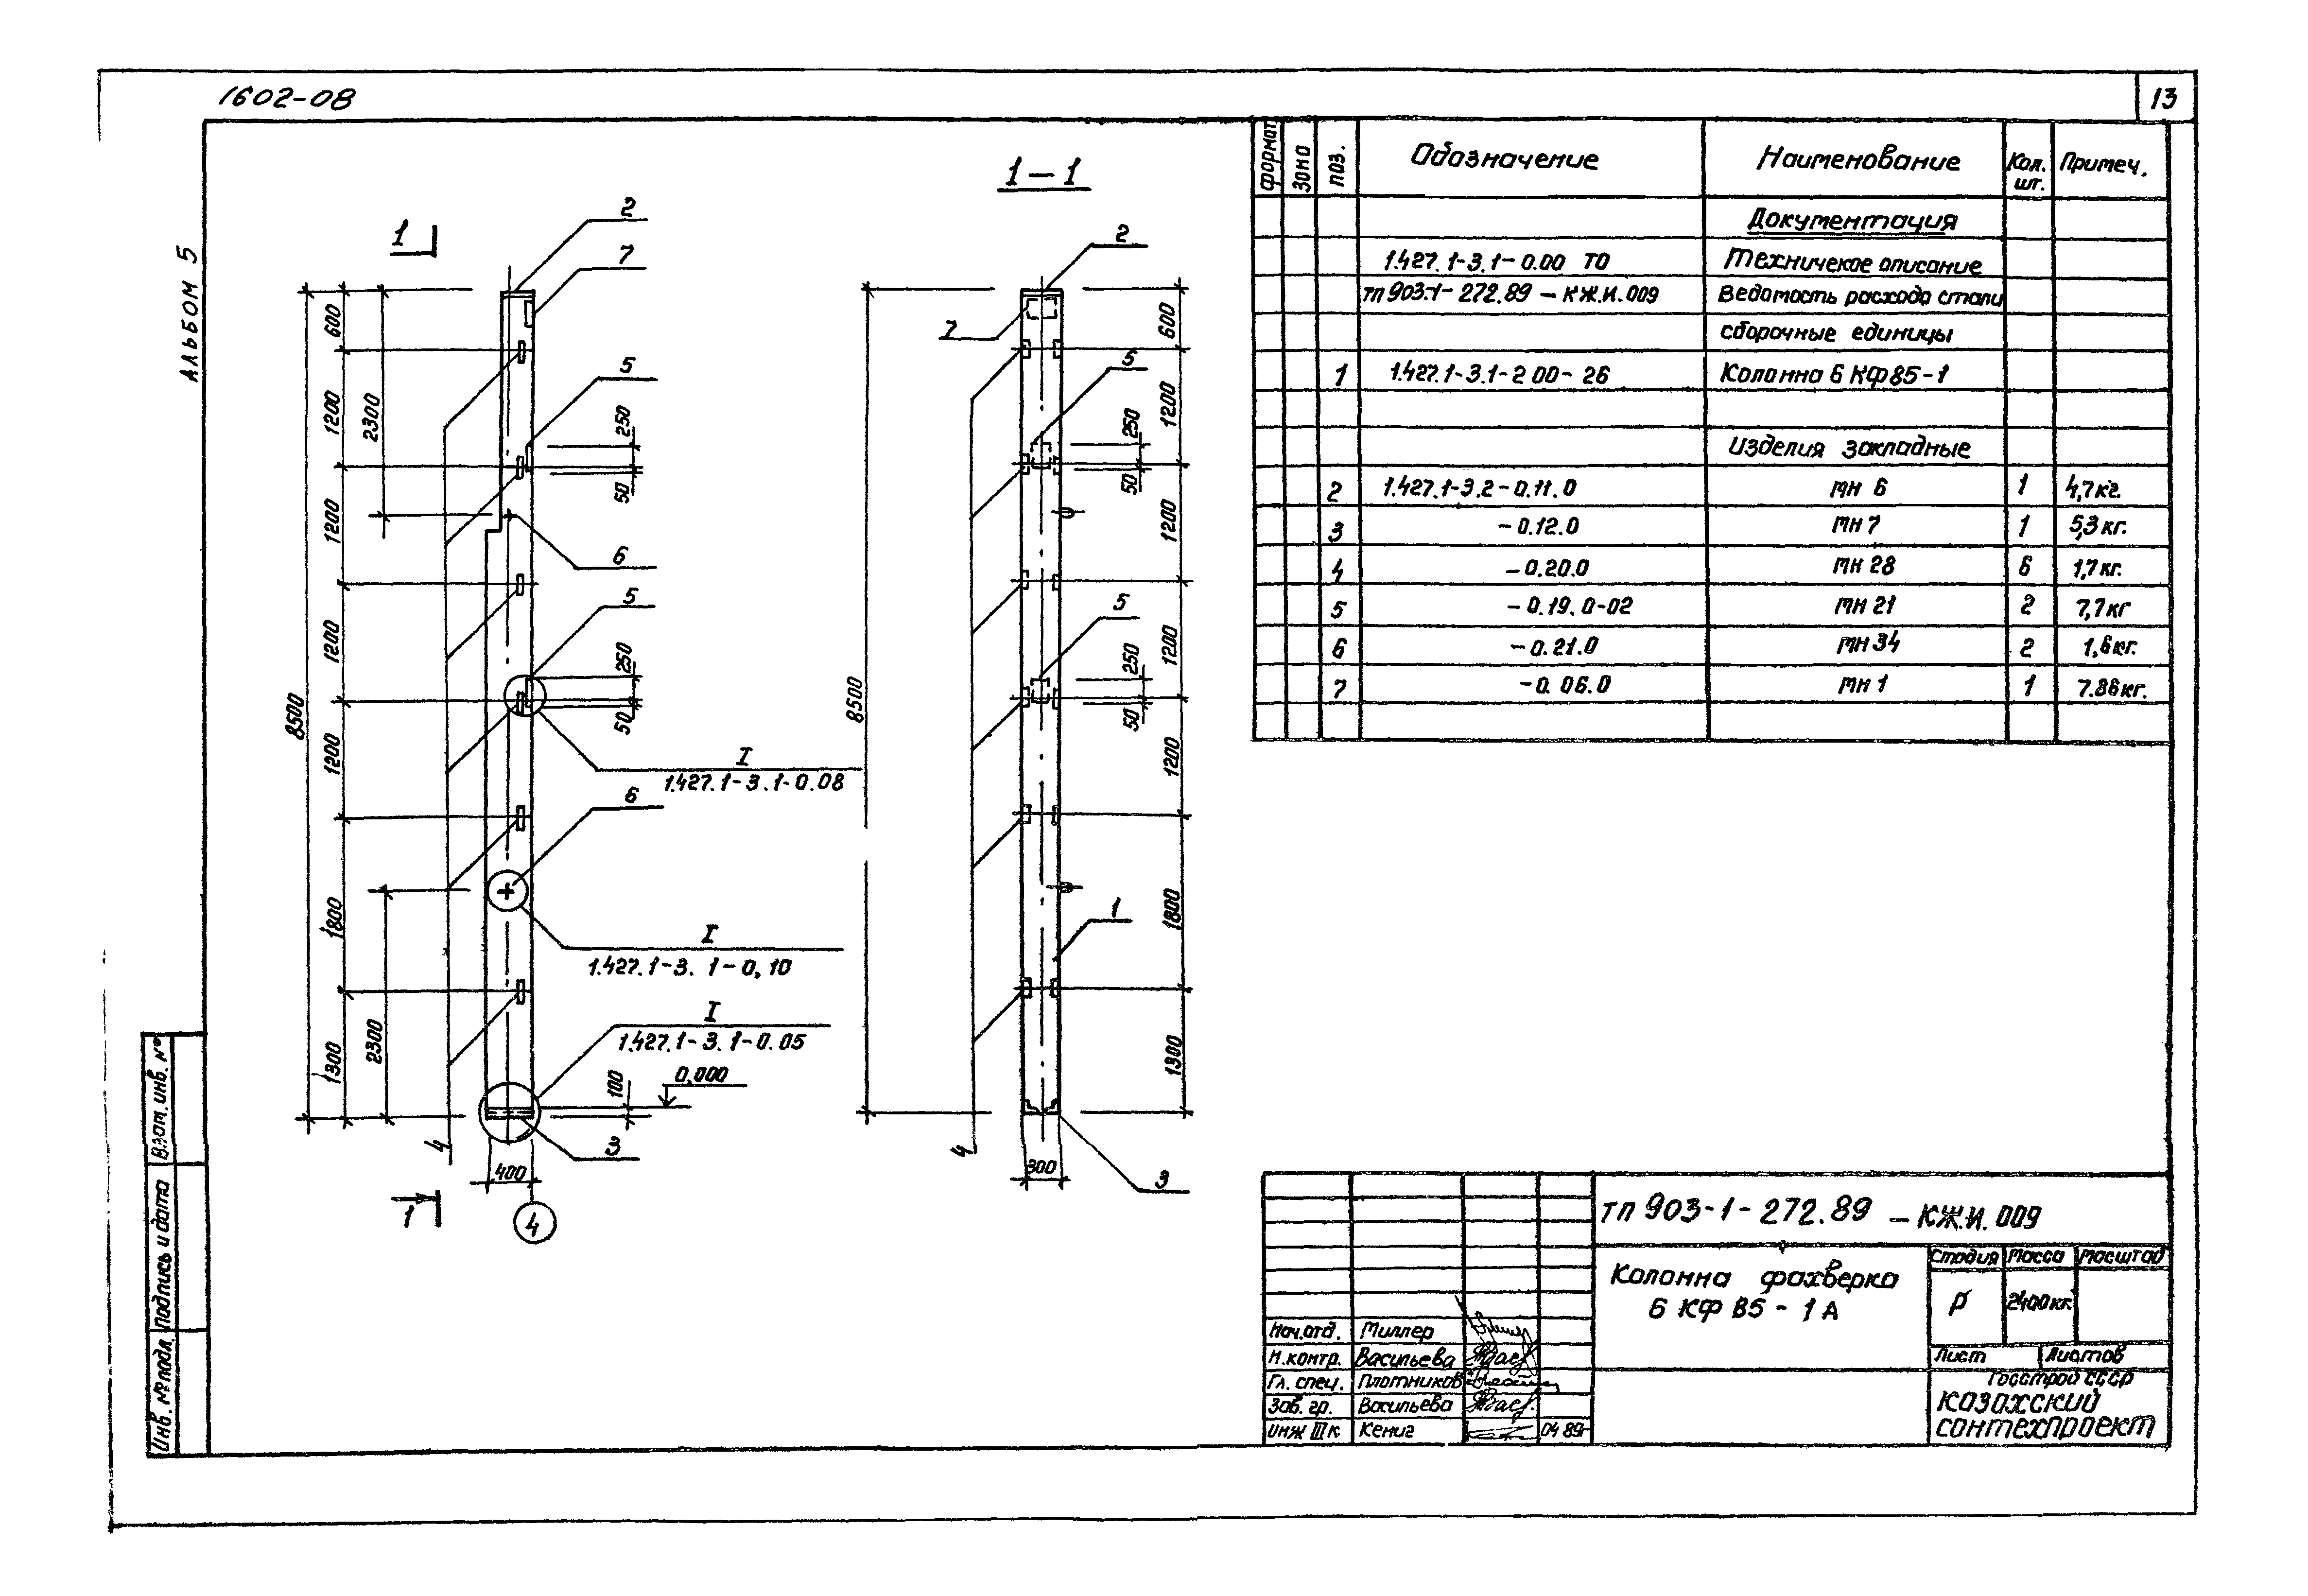 1602-08
13
АЛЬБОМ 5
1
1-1
2
7
5
6
5
I
1.427.1-3.1-0.08
6
I
1.427.1-3. 1-0,10
I
1.427.1-3.1-0.05
0,000
100
3
4
400
1
4
8500
600
1200
1200
1200
1200
1800
1300
2300
2300
250
50
250
50
2
7
5
5
1
3
4
300
8500
600
1200
1200
1200
1200
1800
1300
250
50
250
50
формат Зона поз. Обозначение Наименование Кол. шт. Примеч.
Документация
1.427.1-3.1-0.00 ТО Техничекое описание
тп 903-1-272.89-КЖ.И.009 Ведомость расхода стали
сборочные единицы
1 1.427.1-3.1-2 00-26 Колонна 6 КФ85-1
Изделия закладные
2 1.427.1-3.2-0.11.0 МН 6 1 4,7кг.
3 -0.12.0 МН 7 1 5,3кг.
4 -0.20.0 МН 28 6 1,7кг.
5 -0.19.0-02 МН 21 2 7,7кг
6 -0.21.0 МН 34 2 1,6кг.
7 -0.06.0 МН 1 1 7.86кг.
тп 903-1-272.89 -КЖ.И.009
Колонна фахверка
6 КФ 85-1А
Стадия Масса Масштаб
Р 2400кг.
Лист Листов
Госстрой СССР
Казахский
сантехпроект
Нач.отд. Миллер
Н.контр. Васильева
Гл. спец. Плотников
Зав. гр. Васильева
Инж IIIк Кениг 04 89
Взам. инв. №
Подпись и дата
Инв. № подл.